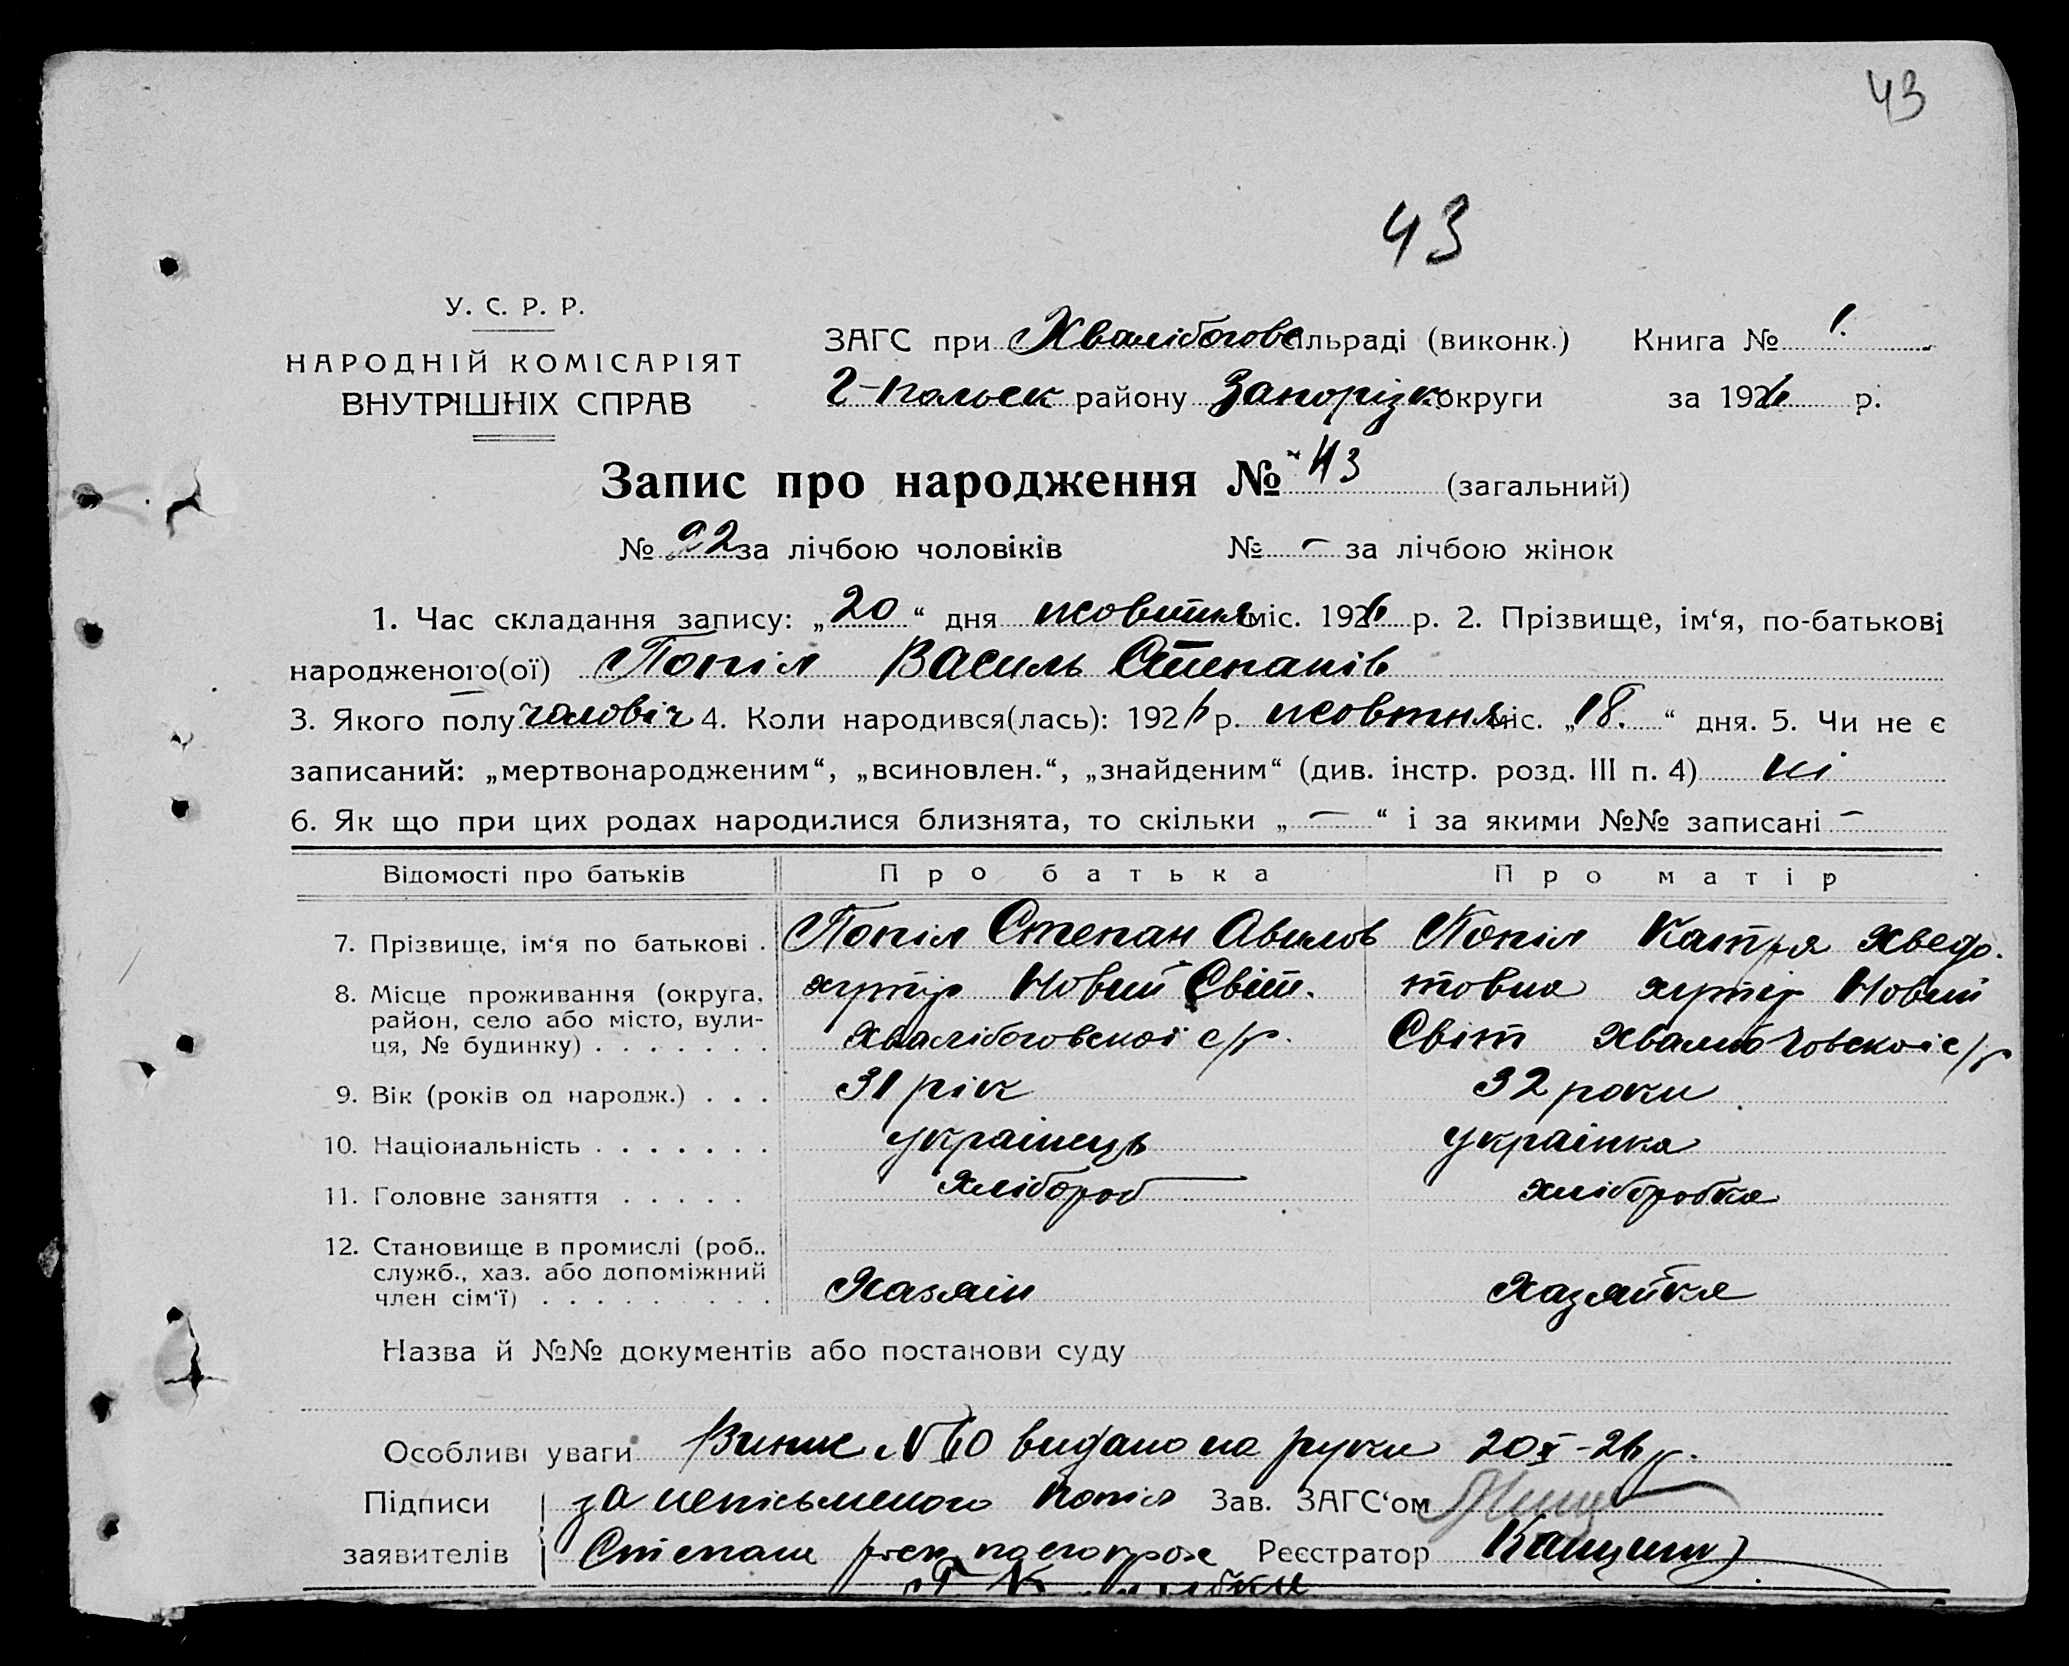 43
43
У. С. Р. Р.
НАРОДНІЙ КОМІСАРІЯТ
ВНУТРІШНІХ СПРАВ
ЗАГС при Хвалібогов сільраді (виконк.) Книга № 1.
Г-польск району Запорізк округи за 1926 р.
Запис про народження № 43 (загальний)
№ 22 за лічбою чоловіків № – за лічбою жінок
1. Час складання запису: „20“ дня жовтня міс. 1926 р. 2. Прізвище, ім‘я, по-батькові
народженого(ої) Попіл Василь Степанів
3. Якого полу чоловіч 4. Коли народився(лась): 1926 р. жовтня міс. „18.“ дня. 5. Чи не є
записаний: „мертвонародженим“, „всиновлен.“, „знайденим“ (див. інстр. розд. III п. 4) ні
6. Як що при цих родах народилися близнята, то скільки „–“ і за якими №№ записані –
Відомості про батьків Про батька Про матір
7. Прізвище, ім‘я по батькові . Попіл Степан Авилов Попіл Катря Хведо-
8. Місце проживання (округа, хутір Новий Світ. товна хутір Новий
район, село або місто, вули-
ця, № будинку) . . . . . . . Хвалібоговскоі с/р. Світ Хвалибоговскоі с/р
9. Вік (років од народж.) . . . 31 рік 32 роки
10. Національність . . . . . . . украінець украінка
11. Головне заняття . . . . . Хлібороб хліборобка
12. Становище в промислі (роб.,
служб., хаз. або допоміжний
член сім‘ї) . . . . . . . . . Хазяін Хазяйка
Назва й №№ документів або постанови суду
Особливі уваги Випис №60 видано на руки 20 X - 26 р.
Підписи за неписьменого Попіл Зав. ЗАГС‘ом
заявителів Степана Реєстратор